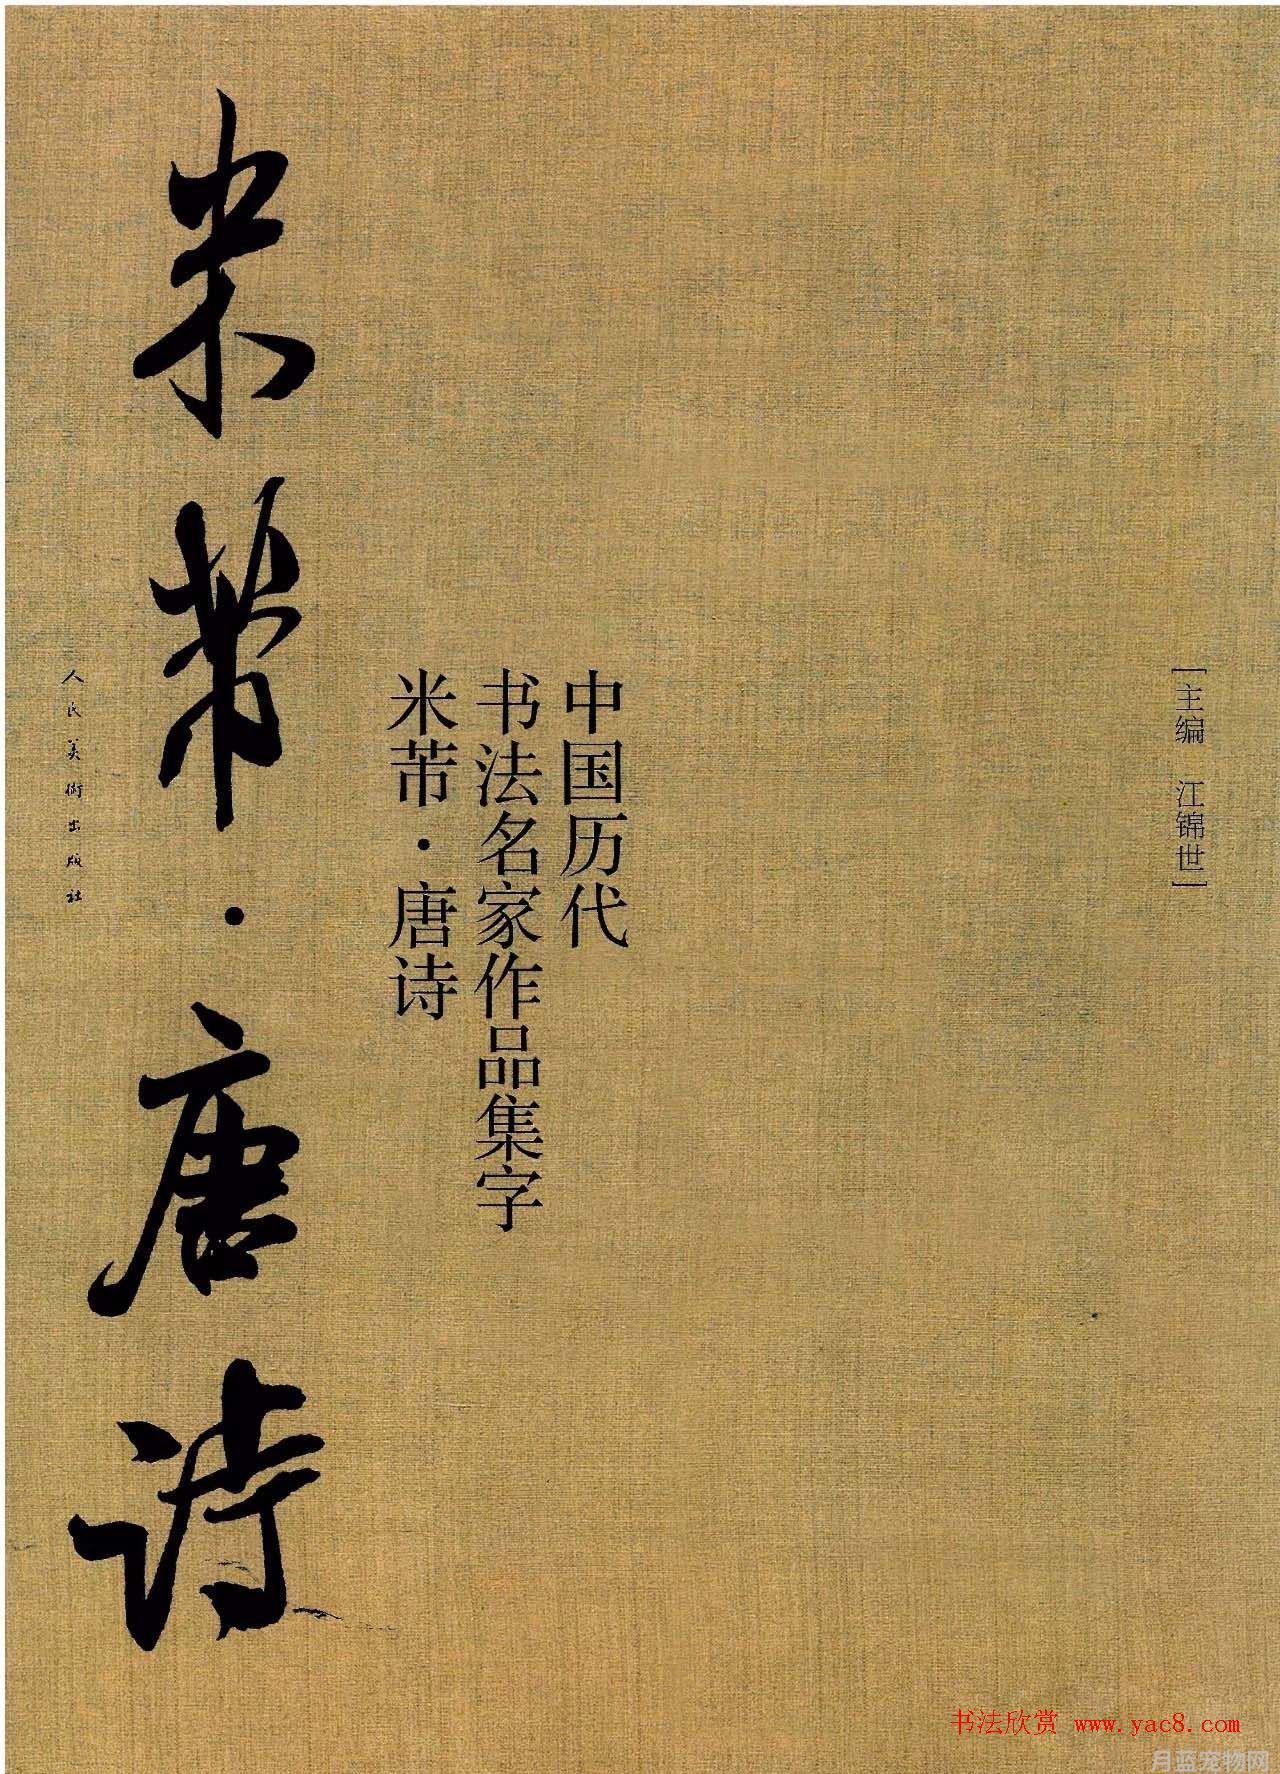 [主编 江锦世]
中国历代
书法名家作品集字
米芾·唐诗
米芾·唐诗
人民美術出版社
书法欣赏 www.yac8.com
月蓝宠物网